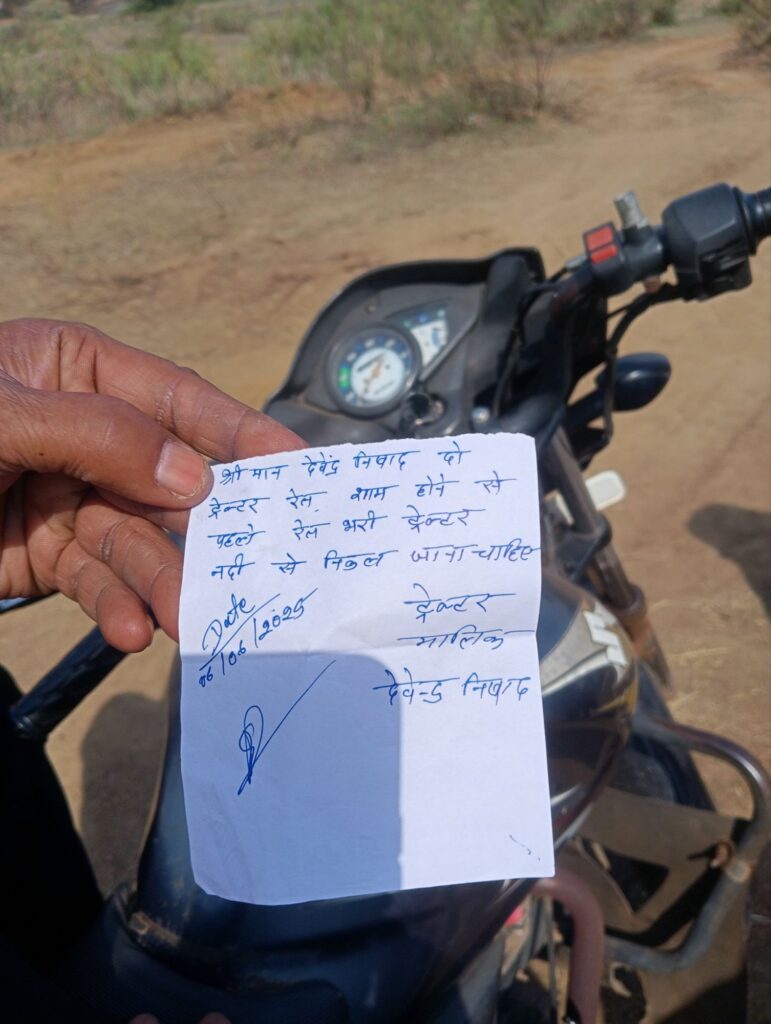 श्री मान देवेंद्र निषाद दो
ट्रेक्टर रेत, शाम होने से
पहले रेत भरी ट्रेक्टर
नदी से निकल जाना चाहिए
Date
06/06/2025
ट्रेक्टर
मालिक
देवेन्द्र निषाद